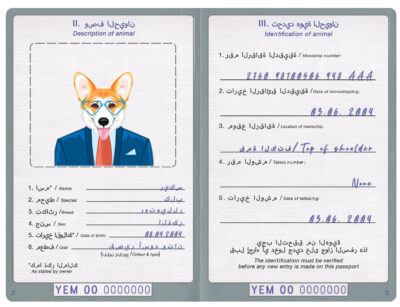 II. وصف الحيوان
Description of animal
1. اسم* / Name:
2. محيط / Species: كلب
3. تكاثر / Breed: روتويللر
4. جنس / Sex: الذكر
5. تاريخ الولادة* / Date of birth
6. معطف / Coat قصير أسود وتان
/Colour & type)
*كما ذكر المالك
As stated by owner
YEM 00 0000000
2
III. تحديد هوية الحيوان
Identification of animal
1. رقم الرقاقة الدقيقة / Microchip number:
AAA
2. تاريخ الرقائق الدقيقة / Date of microchipping:
03.06.2009
3. موقع الرقاقة / Location of microchip:
قمة الكتف / Top of shoulder
4. رقم الوشم / Tattoo number:
None
5. تاريخ الوشم / Date of tattooing:
03.06.2009
يجب التحقق من الهوية
قبل إجراء أي دخول جديد على جواز السفر هذا
The identification must be verified
before any new entry is made on this passport
YEM 00 0000000
3